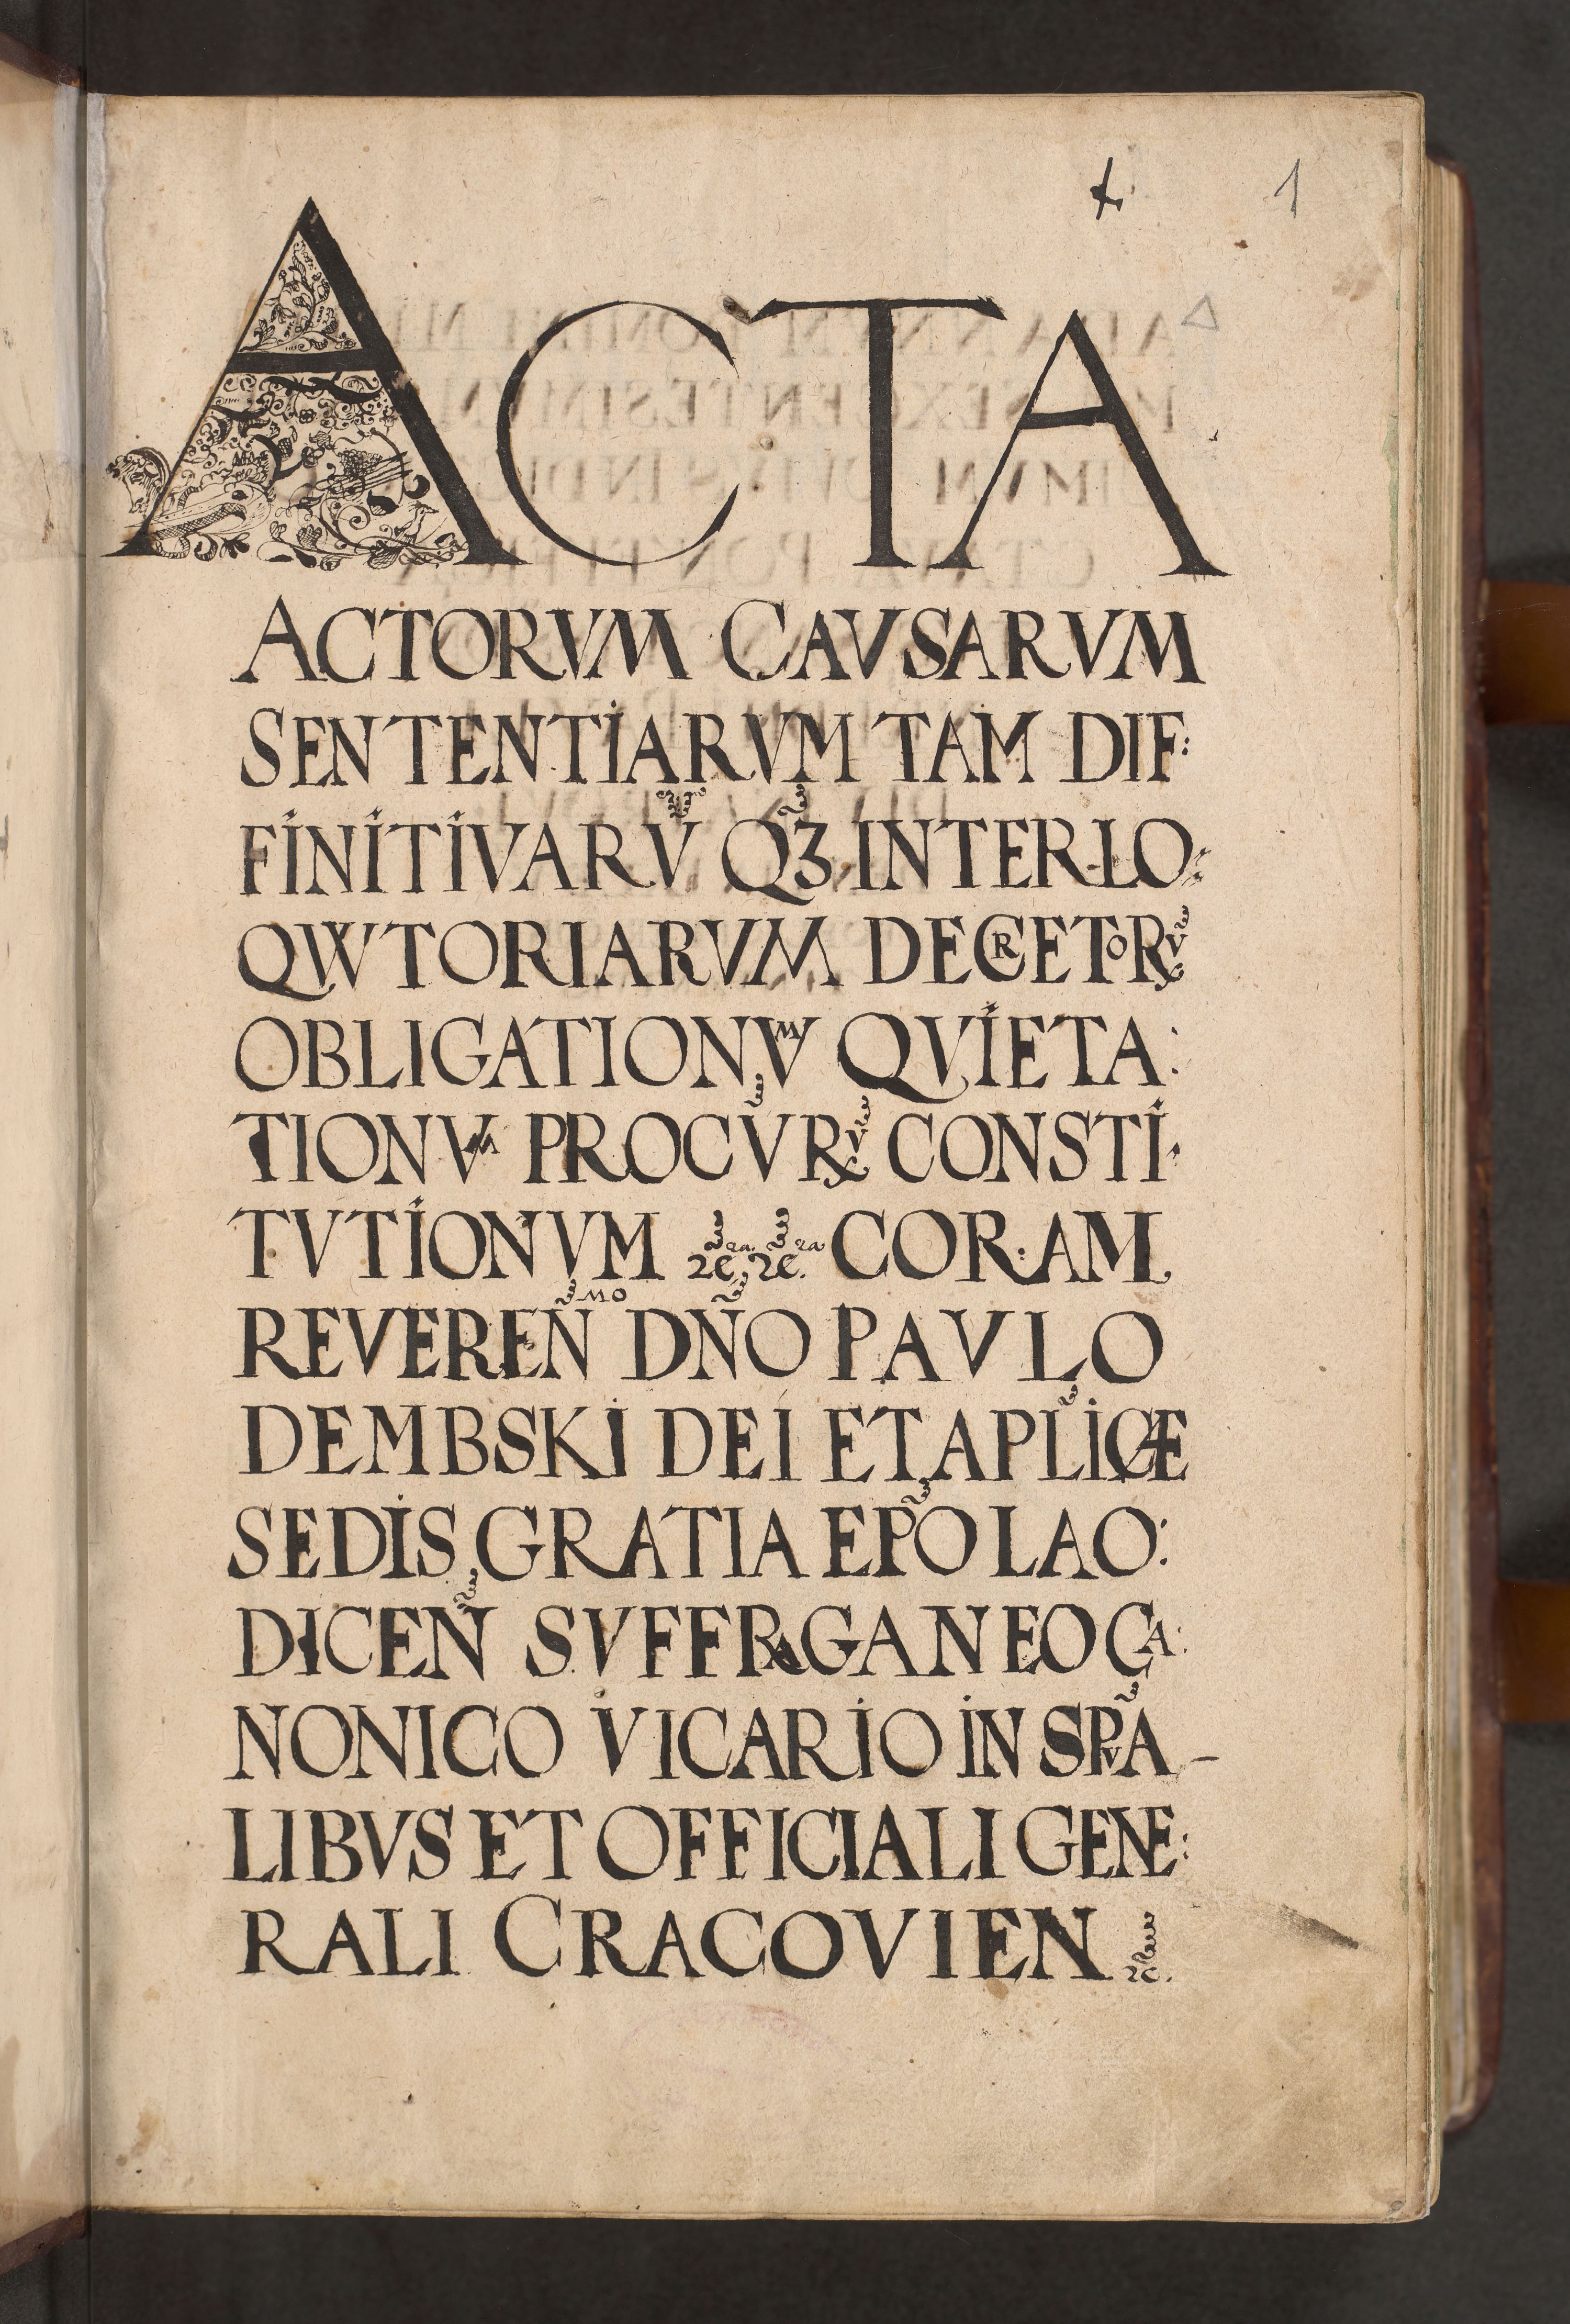 1
ACTA
ACTORVM CAVSARVM
SENTENTIARVM TAM DIF:
FINITIVARṼ QȜ INTERLO:
QVVTORIARVM DECRETORṼ
OBLIGATIONVM QVIETA:
TIONVM PROCVRṼ CONSTI:
TVTIONVM ꝛc̃ra ꝛc̃ra CORAM
REVEREÑMO DÑO PAVLO
DEMBSKI DEI ET APL̃ICÆ
SEDIS GRATIA EP̃O LAO:
DICEÑ SVFFRAGANEO CA:
NONICO VICARIO IN SPVÃ-
LIBVS ET OFFICIALI GENE:
RALI CRACOVIEN ꝛc.